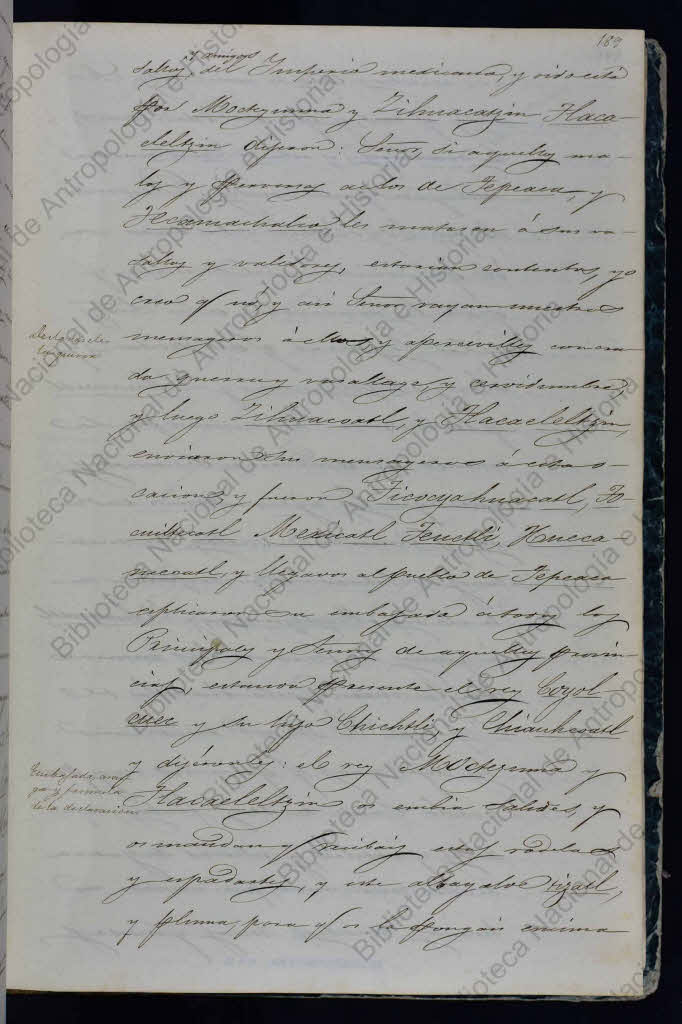 189
y amigos
sallos, del Imperio mexicano, y oido esto
por Moctezuma y Zihuacatzin Tlaca-
eleltzin dijeron: Señor, si aquellos ma-
los y perversos de los de Tepeaca, y
Tecamachalco, les matasen á sus va-
sallos y valedores, estarian contentos, yo
creo q no, y asi Señor vayan nuestros
mensageros á ellos, y apercevilles con cru-
da guerra y vasallage y servidumbre,
y luego Zihuacoatl, y Tlacaeleltzin,
enviaron sus mensageros á esta o-
cacion, y fueron Ticocyahuacatl, To-
cuiltecatl Mexicatl Teuctli, Hueca-
mecatl, y llegados al pueblo de Tepeaca
esplicaron su embajada á todos los
Principales y Señores de aquellas provin-
cias, estando presente el rey Coyol-
cuec y su hijo Chichtli, y Chiauhcoatl
y dijéronles: el rey Moctezuma y
Tlacaeleltzin os embia saludes, y
os mandan q recibais estas rodelas,
y espadartes, y este albayalde tizatl,
y pluma, para q os la pongais encima
Declarase le
la guerra
Embajada, ara-
go y formula
de la declaracion
Biblioteca Nacional de Antropología e Historia